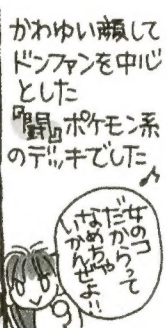 かわゆい顔して
ドンファンを中心
とした
『闘』ポケモン系
のデッキでした♪
女のコ
だからって
なめちゃ
いかんぜよ!!